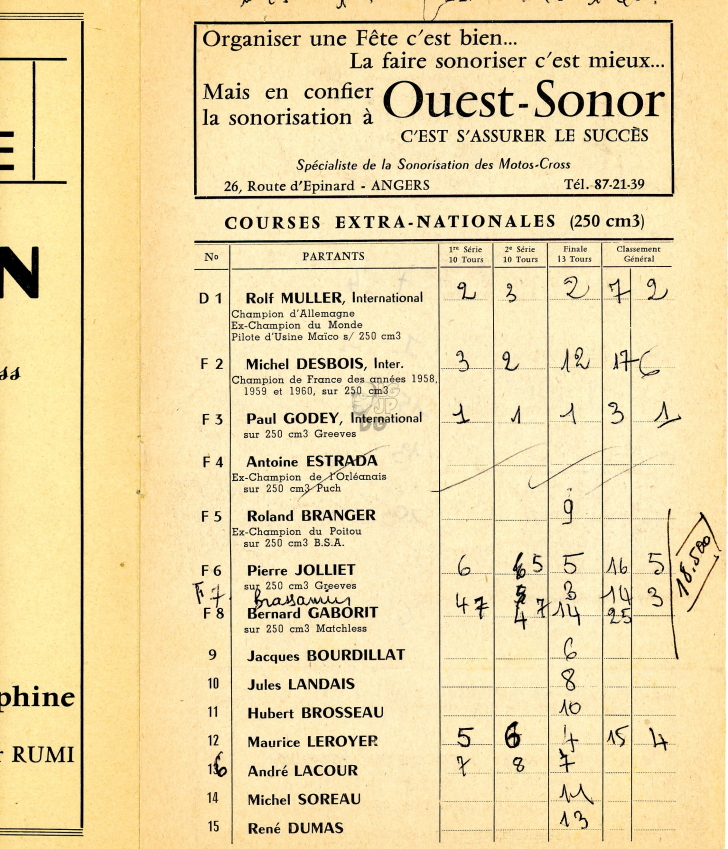 Organiser une Fête c'est bien...
La faire sonoriser c'est mieux...
Mais en confier
la sonorisation à
Ouest-Sonor
C'EST S'ASSURER LE SUCCÈS
Spécialiste de la Sonorisation des Motos-Cross
26, Route d'Epinard - ANGERS Tél. 87-21-39
COURSES EXTRA-NATIONALES (250 cm3)
No PARTANTS 1re Série 10 Tours 2e Série 10 Tours Finale 13 Tours Classement Général
D 1 Rolf MULLER, International 2 3 2 7 2
Champion d'Allemagne
Ex-Champion du Monde
Pilote d'Usine Maïco s/ 250 cm3
F 2 Michel DESBOIS, Inter. 3 2 12 17 6
Champion de France des années 1958,
1959 et 1960, sur 250 cm3
F 3 Paul GODEY, International 1 1 1 3 1
sur 250 cm3 Greeves
F 4 Antoine ESTRADA
Ex-Champion de l'Orléanais
sur 250 cm3 Puch
F 5 Roland BRANGER 9
Ex-Champion du Poitou
sur 250 cm3 B.S.A.
F 6 Pierre JOLLIET 6 5 5 16 5
sur 250 cm3 Greeves
F 7 4 3 14 3
F 8 Bernard GABORIT 7 7 14 25
sur 250 cm3 Matchless
18.500
9 Jacques BOURDILLAT 6
10 Jules LANDAIS 8
11 Hubert BROSSEAU 10
12 Maurice LEROYER 5 6 4 15 4
André LACOUR 7 8 7
14 Michel SOREAU 11
15 René DUMAS 13
E
N
ss
phine
r RUMI